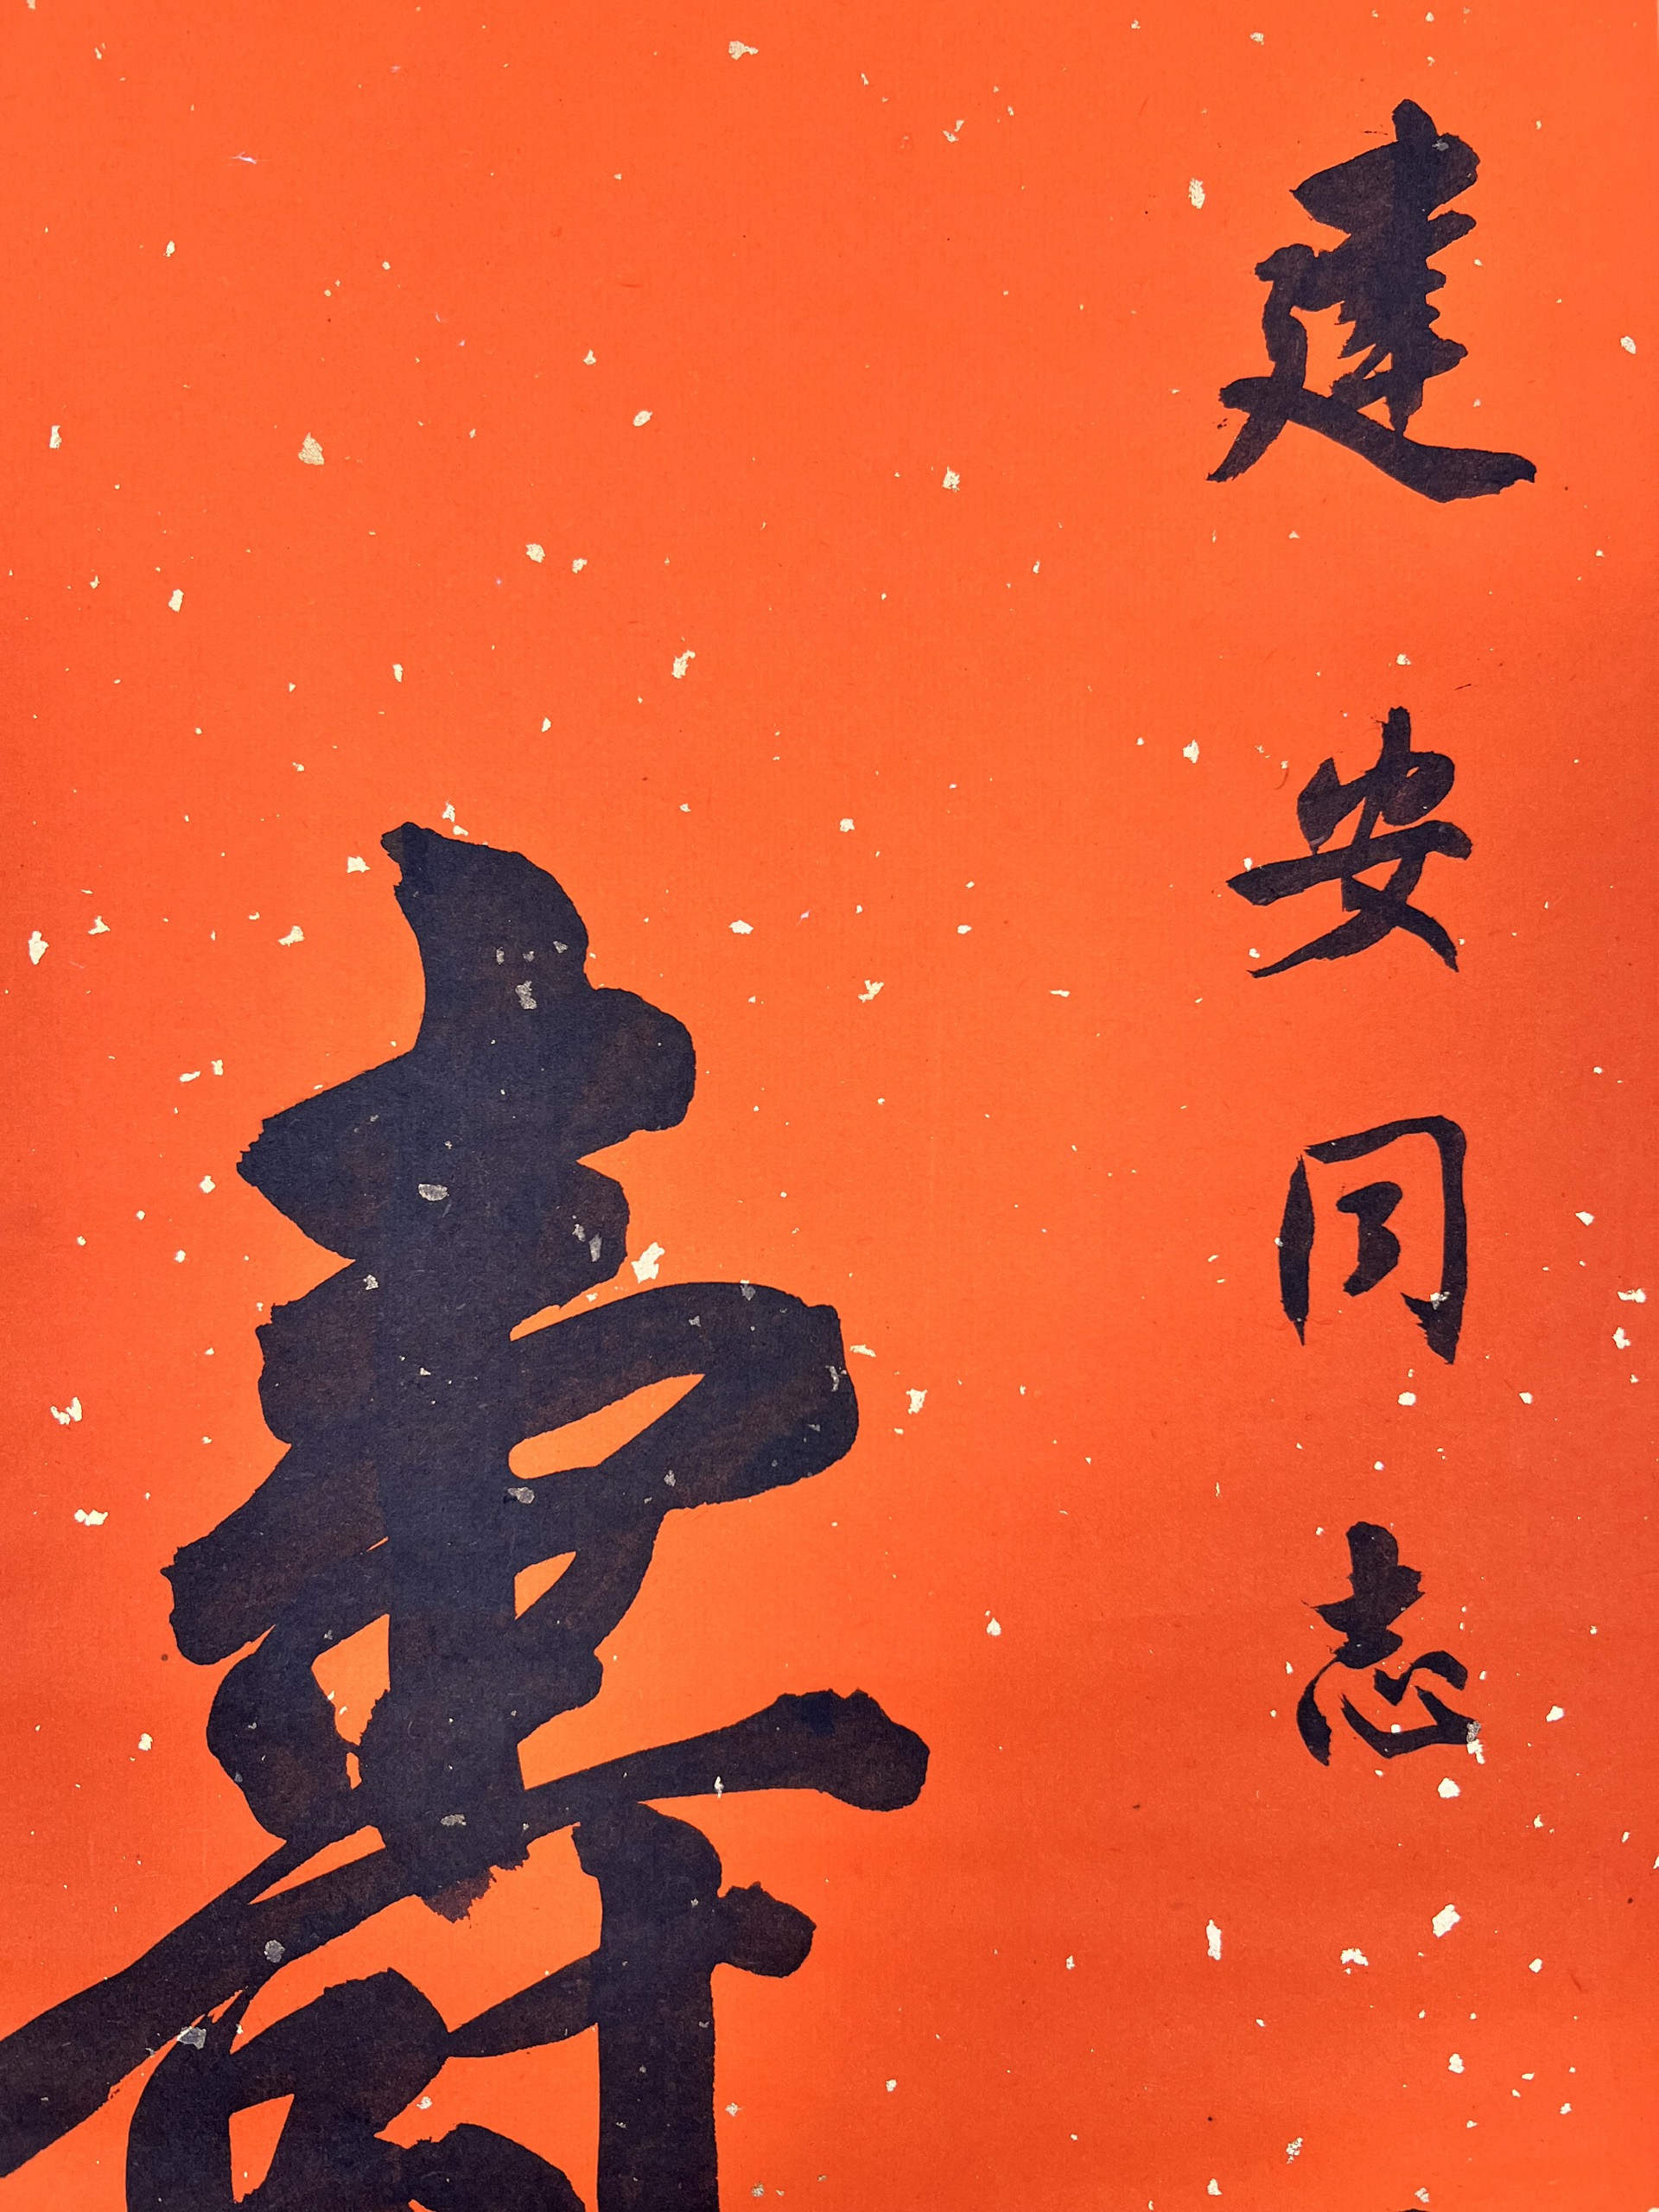 建安同志
壽